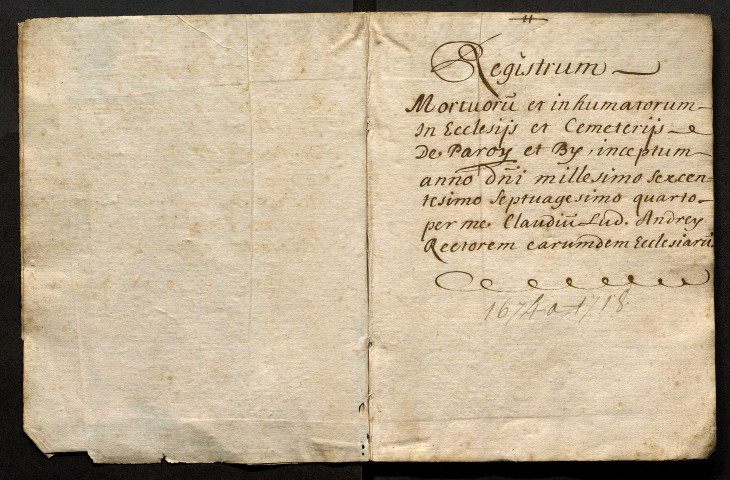 11
Registrum
Mortuorū et inhumatorum
In Ecclesijs et Cemeterijs
De Paroy et By, inceptum
anno dñi millesimo sexcen-
tesimo septuagesimo quarto
per me Claudiū Lud. Andrey
Rectorem earumdem Ecclesiarū
1674 a 1718